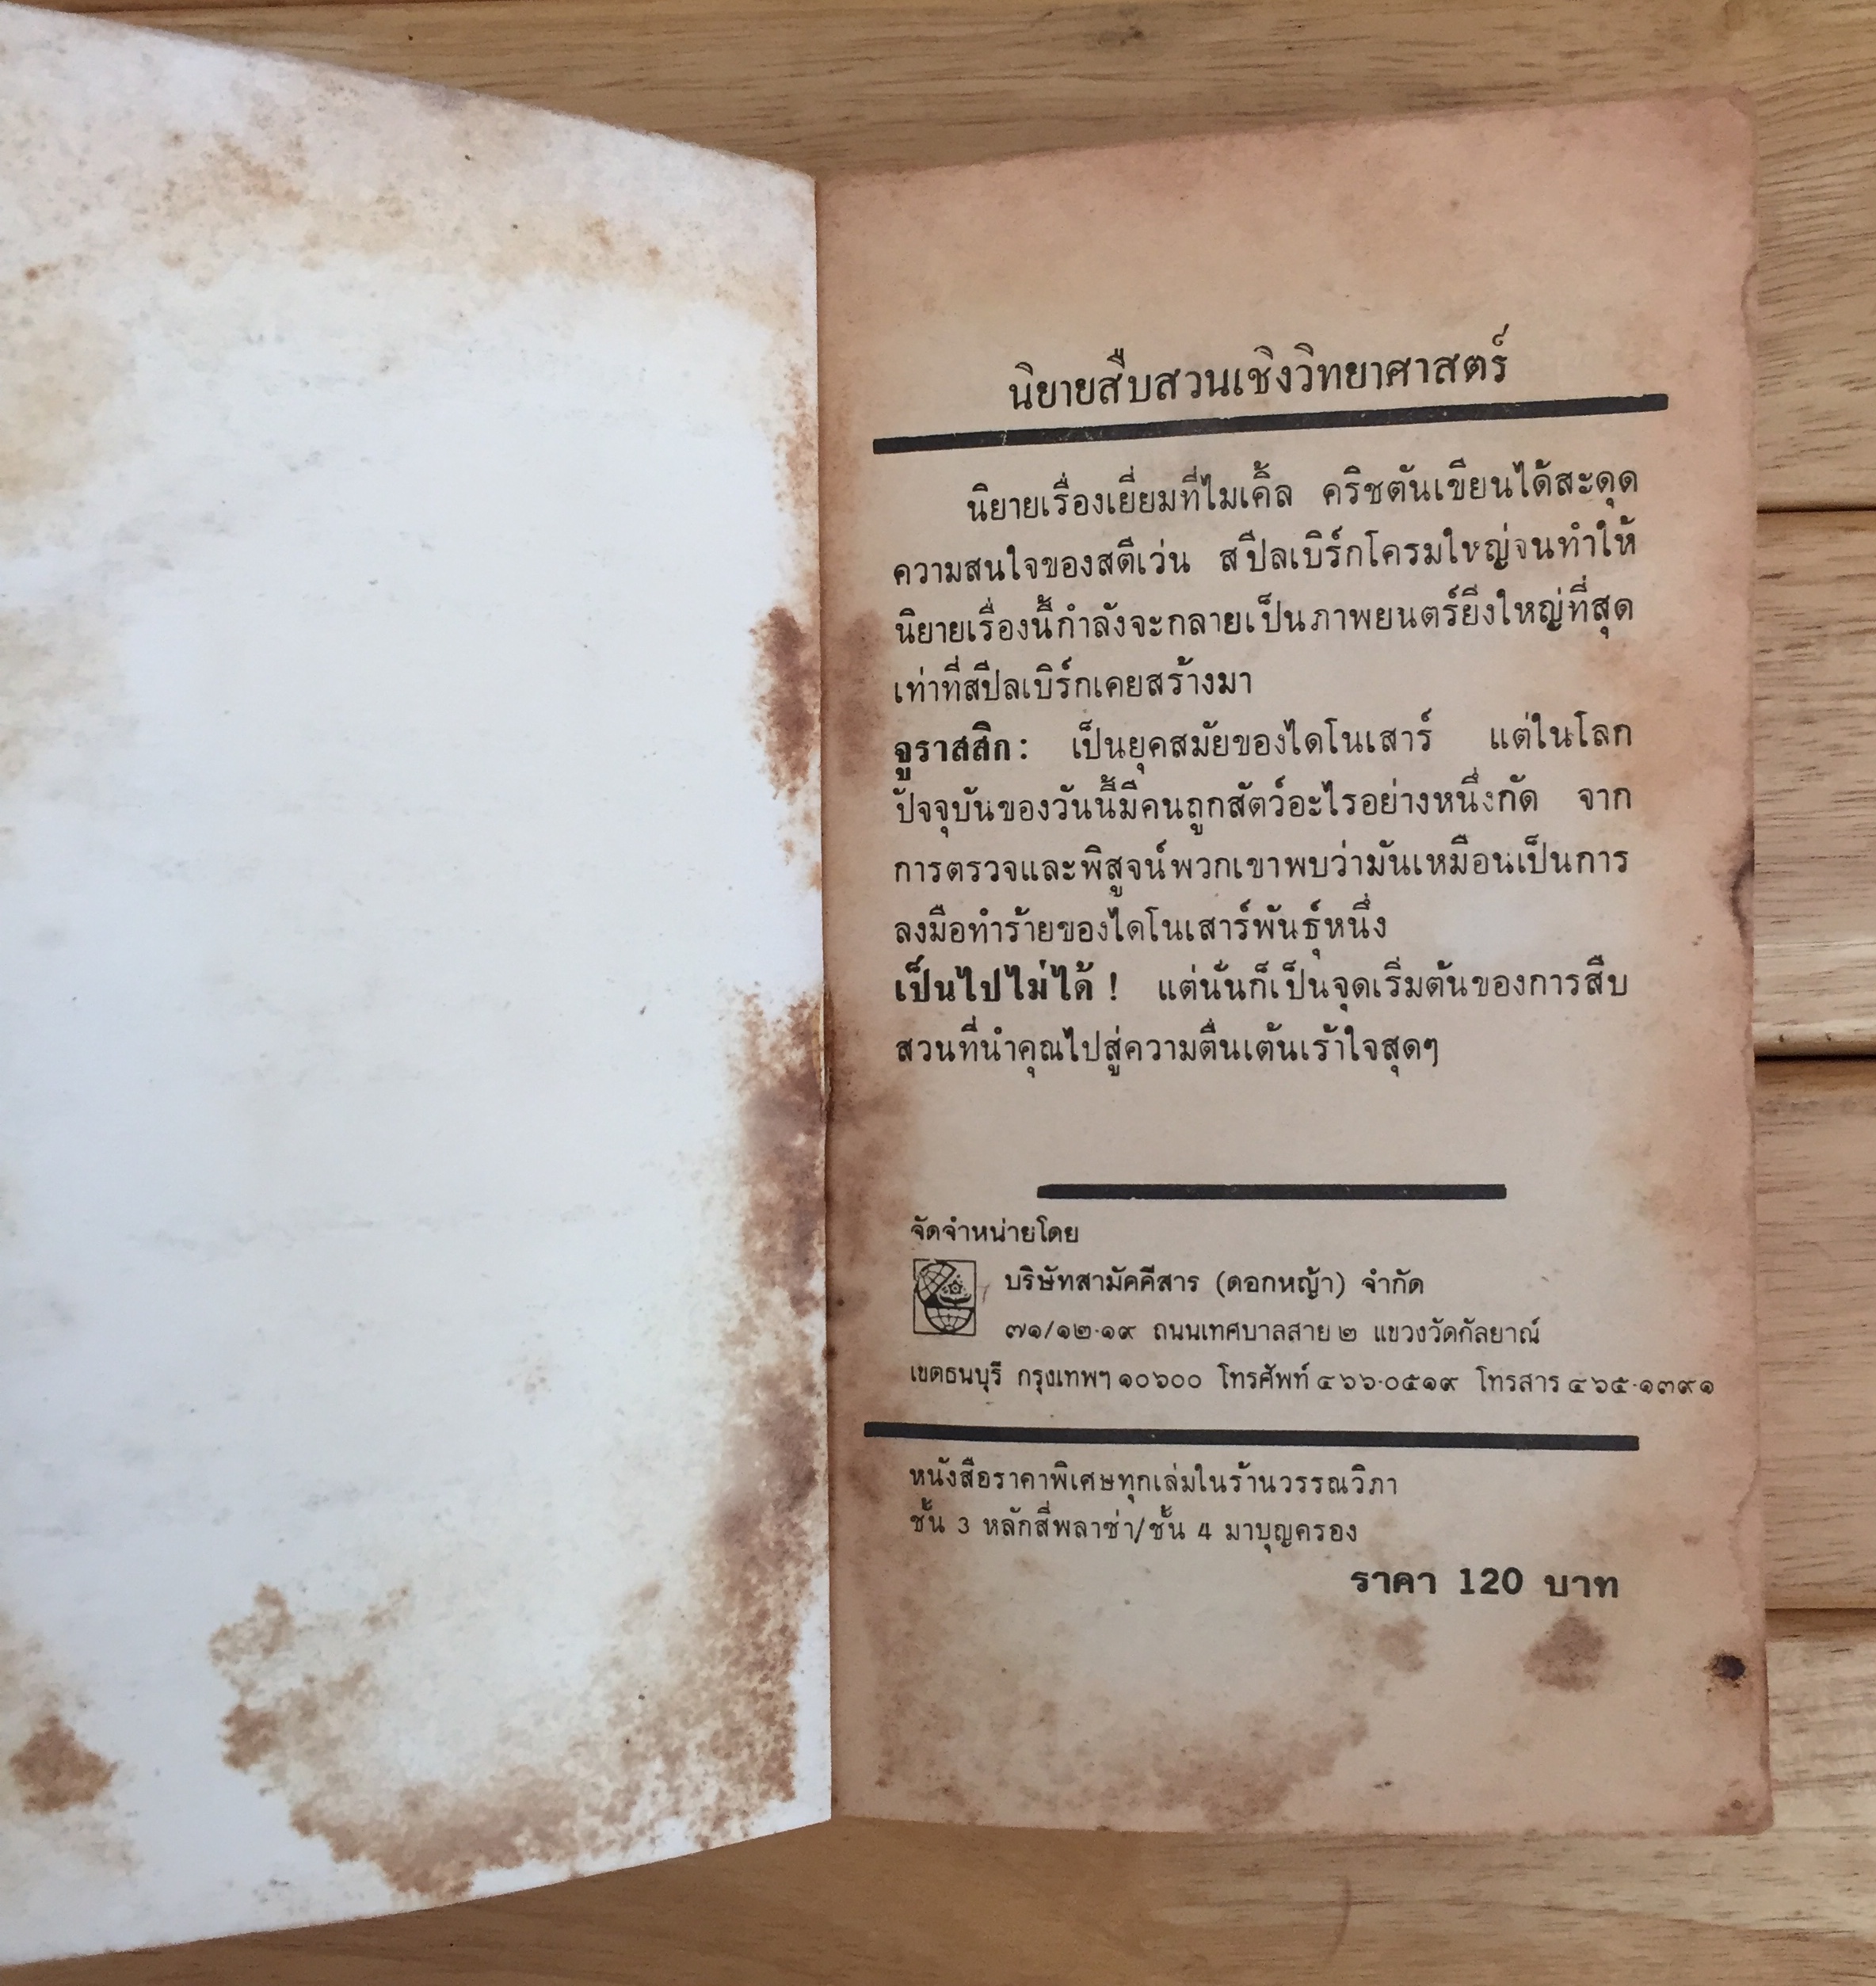 นิยายสืบสวนเชิงวิทยาศาสตร์
นิยายเรื่องเยี่ยมที่ไมเคิ้ล คริชตันเขียนได้สะดุด
ความสนใจของสตีเว่น สปีลเบิร์กโครมใหญ่จนทำให้
นิยายเรื่องนี้กำลังจะกลายเป็นภาพยนตร์ยิ่งใหญ่ที่สุด
เท่าที่สปีลเบิร์กเคยสร้างมา
จูราสสิก: เป็นยุคสมัยของไดโนเสาร์ แต่ในโลก
ปัจจุบันของวันนี้มีคนถูกสัตว์อะไรอย่างหนึ่งกัด จาก
การตรวจและพิสูจน์พวกเขาพบว่ามันเหมือนเป็นการ
ลงมือทำร้ายของไดโนเสาร์พันธุ์หนึ่ง
เป็นไปไม่ได้! แต่นั่นก็เป็นจุดเริ่มต้นของการสืบ
สวนที่นำคุณไปสู่ความตื่นเต้นเร้าใจสุดๆ
จัดจำหน่ายโดย
บริษัทสามัคคีสาร (ดอกหญ้า) จำกัด
๗๑/๑๒-๑๙ ถนนเทศบาลสาย ๒ แขวงวัดกัลยาณ์
เขตธนบุรี กรุงเทพฯ ๑๐๖๐๐ โทรศัพท์ ๔๖๖-๐๕๑๙ โทรสาร ๔๖๕-๑๓๙๑
หนังสือราคาพิเศษทุกเล่มในร้านวรรณวิภา
ชั้น 3 หลักสี่พลาซ่า/ชั้น 4 มาบุญครอง
ราคา 120 บาท